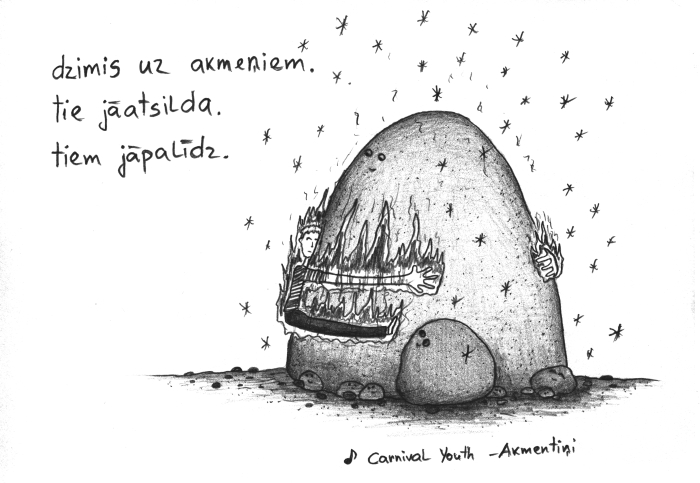 dzimis uz akmeņiem.
tie jāatsilda.
tiem jāpalīdz.
♪ Carnival Youth - Akmentiņi